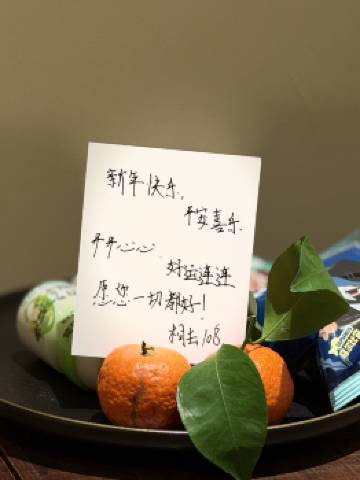 新年快乐,
平安喜乐
开开心心
好运连连
愿您一切都好!
108